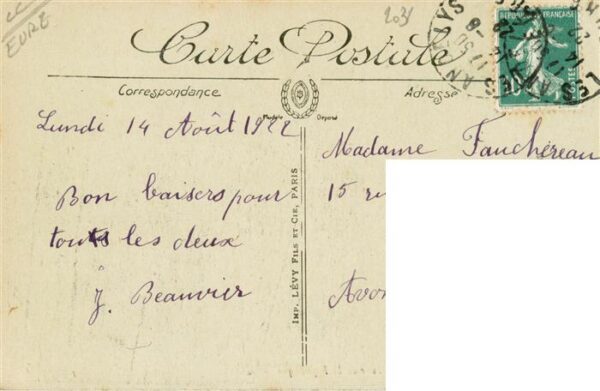 EURE
2031
Carte Postale
Correspondance
Adresse
Modèle Déposé
RÉPUBLIQUE FRANÇAISE
LES ANDELYS
Lundi 14 Août 1922
Bon baisers pour
touts les deux
J. Beauvier
IMP. LÉVY FILS ET CIE, PARIS
Madame Fauchéreau
15
Avon